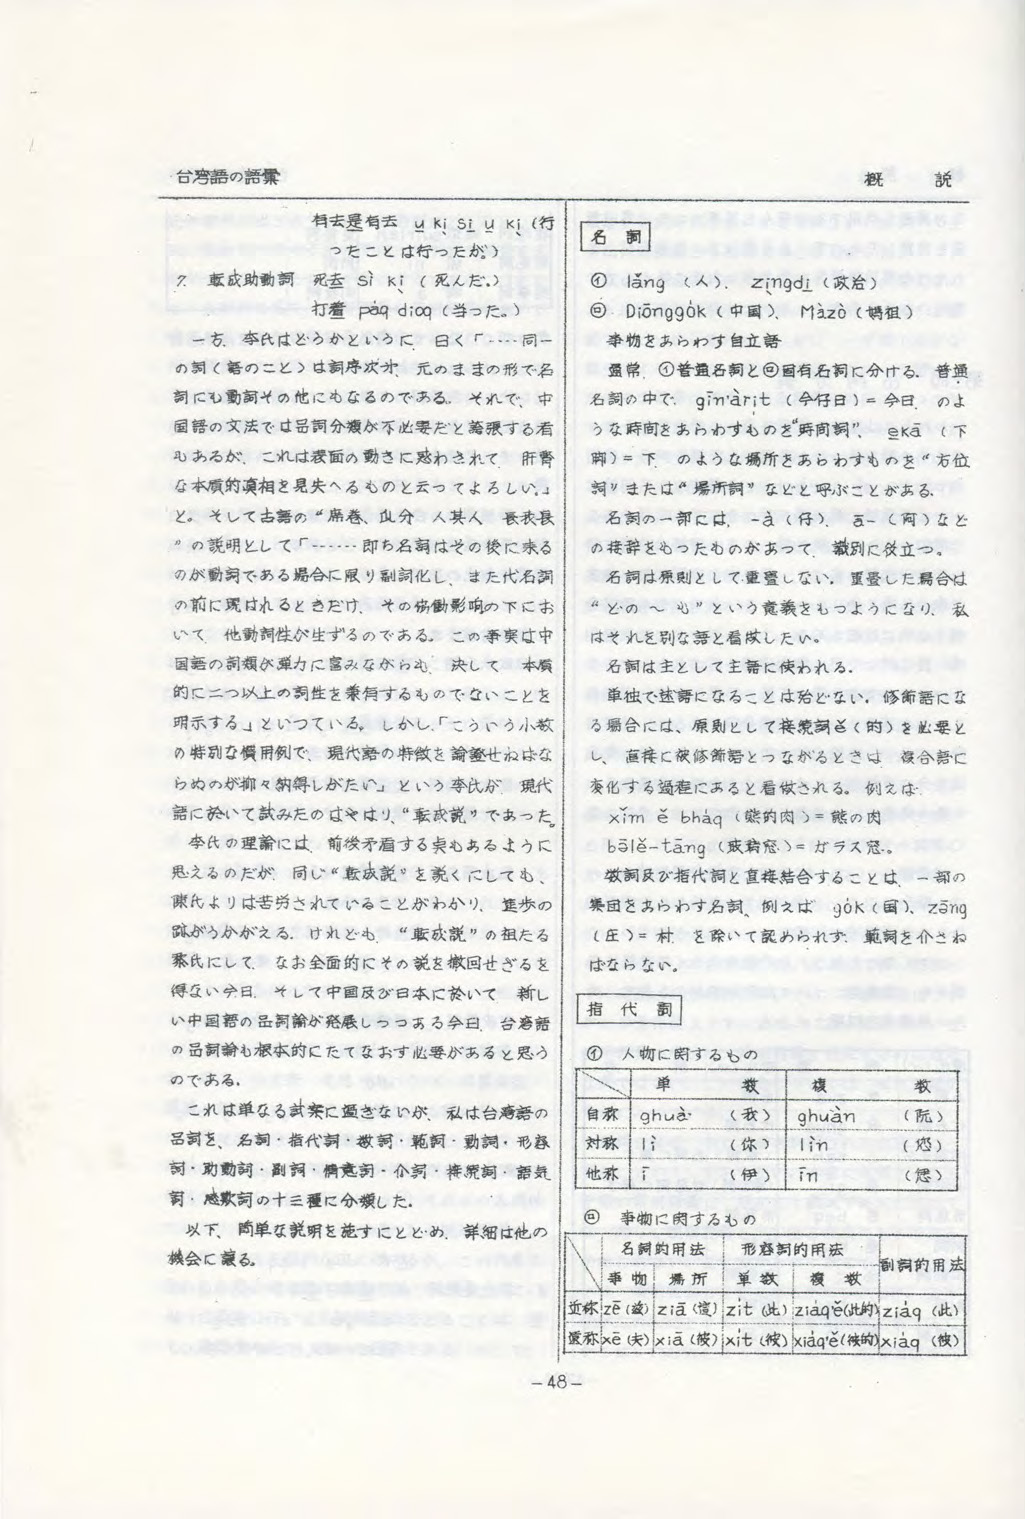 台湾語の語彙
概 説
有去是有去 u ki si u ki (行
ったことは行ったが。)
7. 転成助動詞 死去 sì kì (死んだ。)
打着 páq dioq (当った。)
一方、李氏はどうかというに、曰く「……同一
の詞(語のこと)は詞序次才、元のままの形で名
詞にも動詞その他にもなるのである。それで、中
国語の文法では品詞分類が不必要だと誇張する者
もあるが、これは表面の動きに惑わされて、肝腎
な本質的真相を見失へるものと云ってよろしい。」
と。そして古語の“席巻、瓜分、人其人、長我長
”の説明として「……即ち名詞はその後に来る
のが動詞である場合に限り副詞化し、また代名詞
の前に現はれるときだけ、その労働影响の下にお
いて、他動詞性が生ずるのである。この事実は中
国語の詞類が弾力に富みながらも、決して、本質
的に二つ以上の詞性を兼有するものでないことを
明示する」といつている。しかし、「こういう小数
の特別な慣用例で、現代語の特徴を論証せねはな
らぬのが抑々納得しがたい」という李氏が、現代
語に於いて試みたのはやはり、“転成説”であった。
李氏の理論には、前後矛盾する点もあるように
思えるのだが、同じ“転成説”を説くにしても、
陳氏よりは苦労されていることがわかり、進歩の
跡がうかがえる。けれども、“転成説”の祖たる
黎氏にして、なお全面的にその説を撤回せざるを
得ない今日、そして中国及び日本に於いて、新し
い中国語の品詞論が発展しつつある今日、台湾語
の品詞論も根本的にたてなおす必要があると思う
のである。
これは単なる試案に過ぎないが、私は台湾語の
品詞を、名詞・指代詞・数詞・範詞・動詞・形容
詞・助動詞・副詞・情意詞・介詞・接続詞・語気
詞・感歎詞の十三種に分類した。
以下、簡単な説明を施すにとどめ、詳細は他の
機会に譲る。
名 詞
㋑ lǎng (人)、 zìngdi (政治)
㋺ Diōnggók (中国)、 Màzò (媽祖)
事物をあらわす自立語
通常、㋑普通名詞と㋺固有名詞に分ける。普通
名詞の中で、gīn'àrit (今仔日)=今日、のよ
うな時間をあらわすものを“時間詞”、ekā (下
脚)=下、のような場所をあらわすものを“方位
詞”または“場所詞”などと呼ぶことがある。
名詞の一部には、-à (仔)、ā- (阿) など
の接辞をもったものがあって、識別に役立つ。
名詞は原則として重畳しない。重畳した場合は
“どの~も”という意義をもつようになり、私
はそれを別な語と看做したい。
名詞は主として主語に使われる。
単独で述語になることは殆どない。修飾語にな
る場合には、原則として接続詞ě (的) を必要と
し、直接に被修飾語とつながるときは、複合語に
変化する過程にあると看做される。例えば:
xǐm ě bháq (熊的肉)=熊の肉
bōlě-tāng (玻璃窓)=ガラス窓。
数詞及び指代詞と直接結合することは、一部の
集団をあらわす名詞、例えは gók (国)、zōng
(庄)=村、を除いて認められず、範詞を介さね
はならない。
指 代 詞
㋑ 人物に関するもの
単 数 複 数
自称 ghuà (我) ghuàn (阮)
対称 lì (你) lìn (恁)
他称 ī (伊) īn (偲)
㋺ 事物に関するもの
名詞的用法 形容詞的用法 副詞的用法
事物 場所 単数 複数
近称 zē (這) ziā zit (此) ziáqě (此的) ziáq (此)
遠称 xē (夫) xiā (彼) xit (彼) xiáqě (彼的) xiáq (彼)
-48-